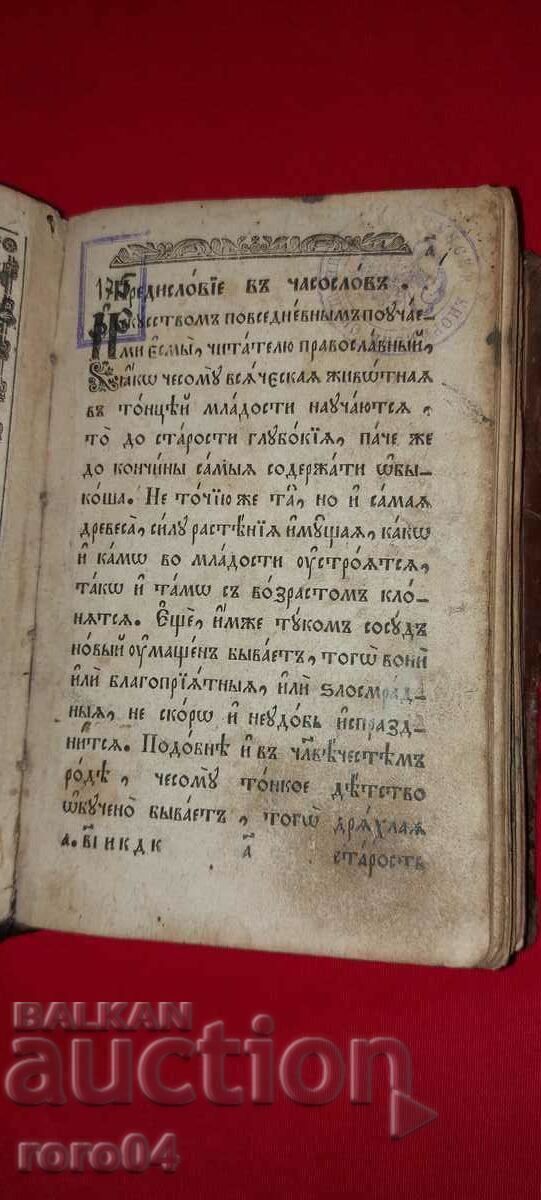 а҃
Предисло́вїе въ часосло́въ.
И҆скꙋсствомъ повседне́внымъ поꙋча́е-
ми є҆смы̀, чита́телю правосла́вный,
ꙗ҆́кѡ чесомꙋ̀ всѧ́ческаѧ живѡ́тнаѧ
въ то́нцѣй мла́дости наꙋча́ютсѧ,
то̀ до ста́рости глꙋбо́кїѧ, па́че же
до кончи́ны са́мыѧ содержа́ти ѡ҆бы-
ко́ша. Не то́чїю же та̑, но и҆ са́маѧ
древеса̀, си́лꙋ расте́нїѧ и҆мꙋ́щаѧ, ка́кѡ
и҆ ка́мѡ во мла́дости ᲂу҆стро́ѧтсѧ,
та́кѡ и҆ та́мѡ съ во́зрастомъ кло́-
нѧтсѧ. Є҆щѐ, и҆́мже тꙋ́комъ сосꙋ́дъ
но́вый ᲂу҆ма́щенъ быва́етъ, тогѡ̀ вонѝ
и҆лѝ благопрїѧ́тныѧ, и҆лѝ ѕлосмра́д-
ныѧ, не ско́рѡ и҆ неꙋдо́бь и҆спразд-
ни́тсѧ. Подо́бнѣ и҆ въ чл҃вѣ́честѣмъ
ро́дѣ, чесомꙋ̀ то́нкое дѣ́тство
ѡ҆бꙋче́но быва́етъ, тогѡ̀ дрѧ́хлаѧ
а҃
ста́рость
BALKAN
auction
roro04